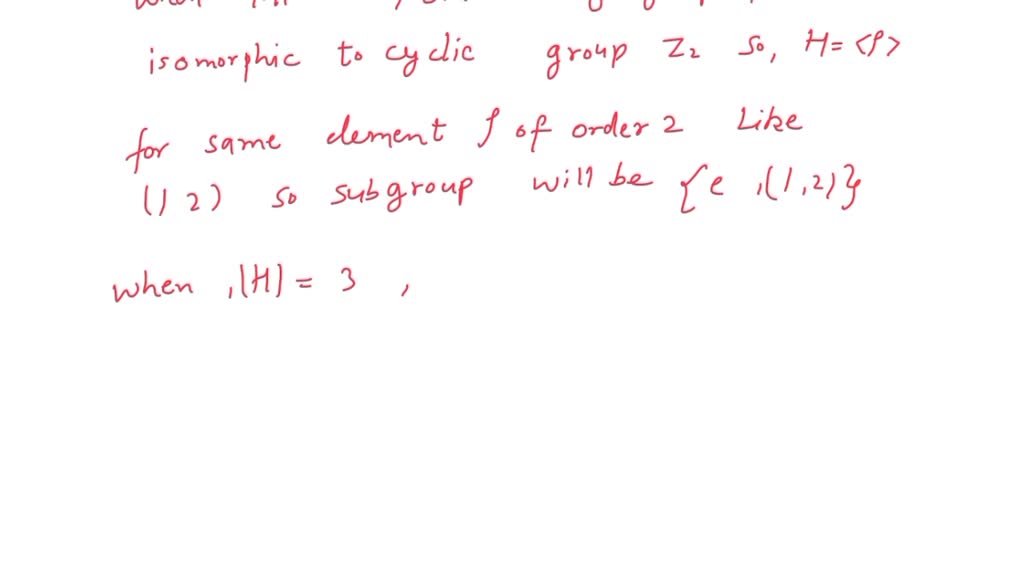 isomorphic to cyclic group Z₂ so, H = <ρ>
for same element ρ of order 2 Like
(1 2) so subgroup will be {e ,(1,2)}
when ,|H| = 3 ,